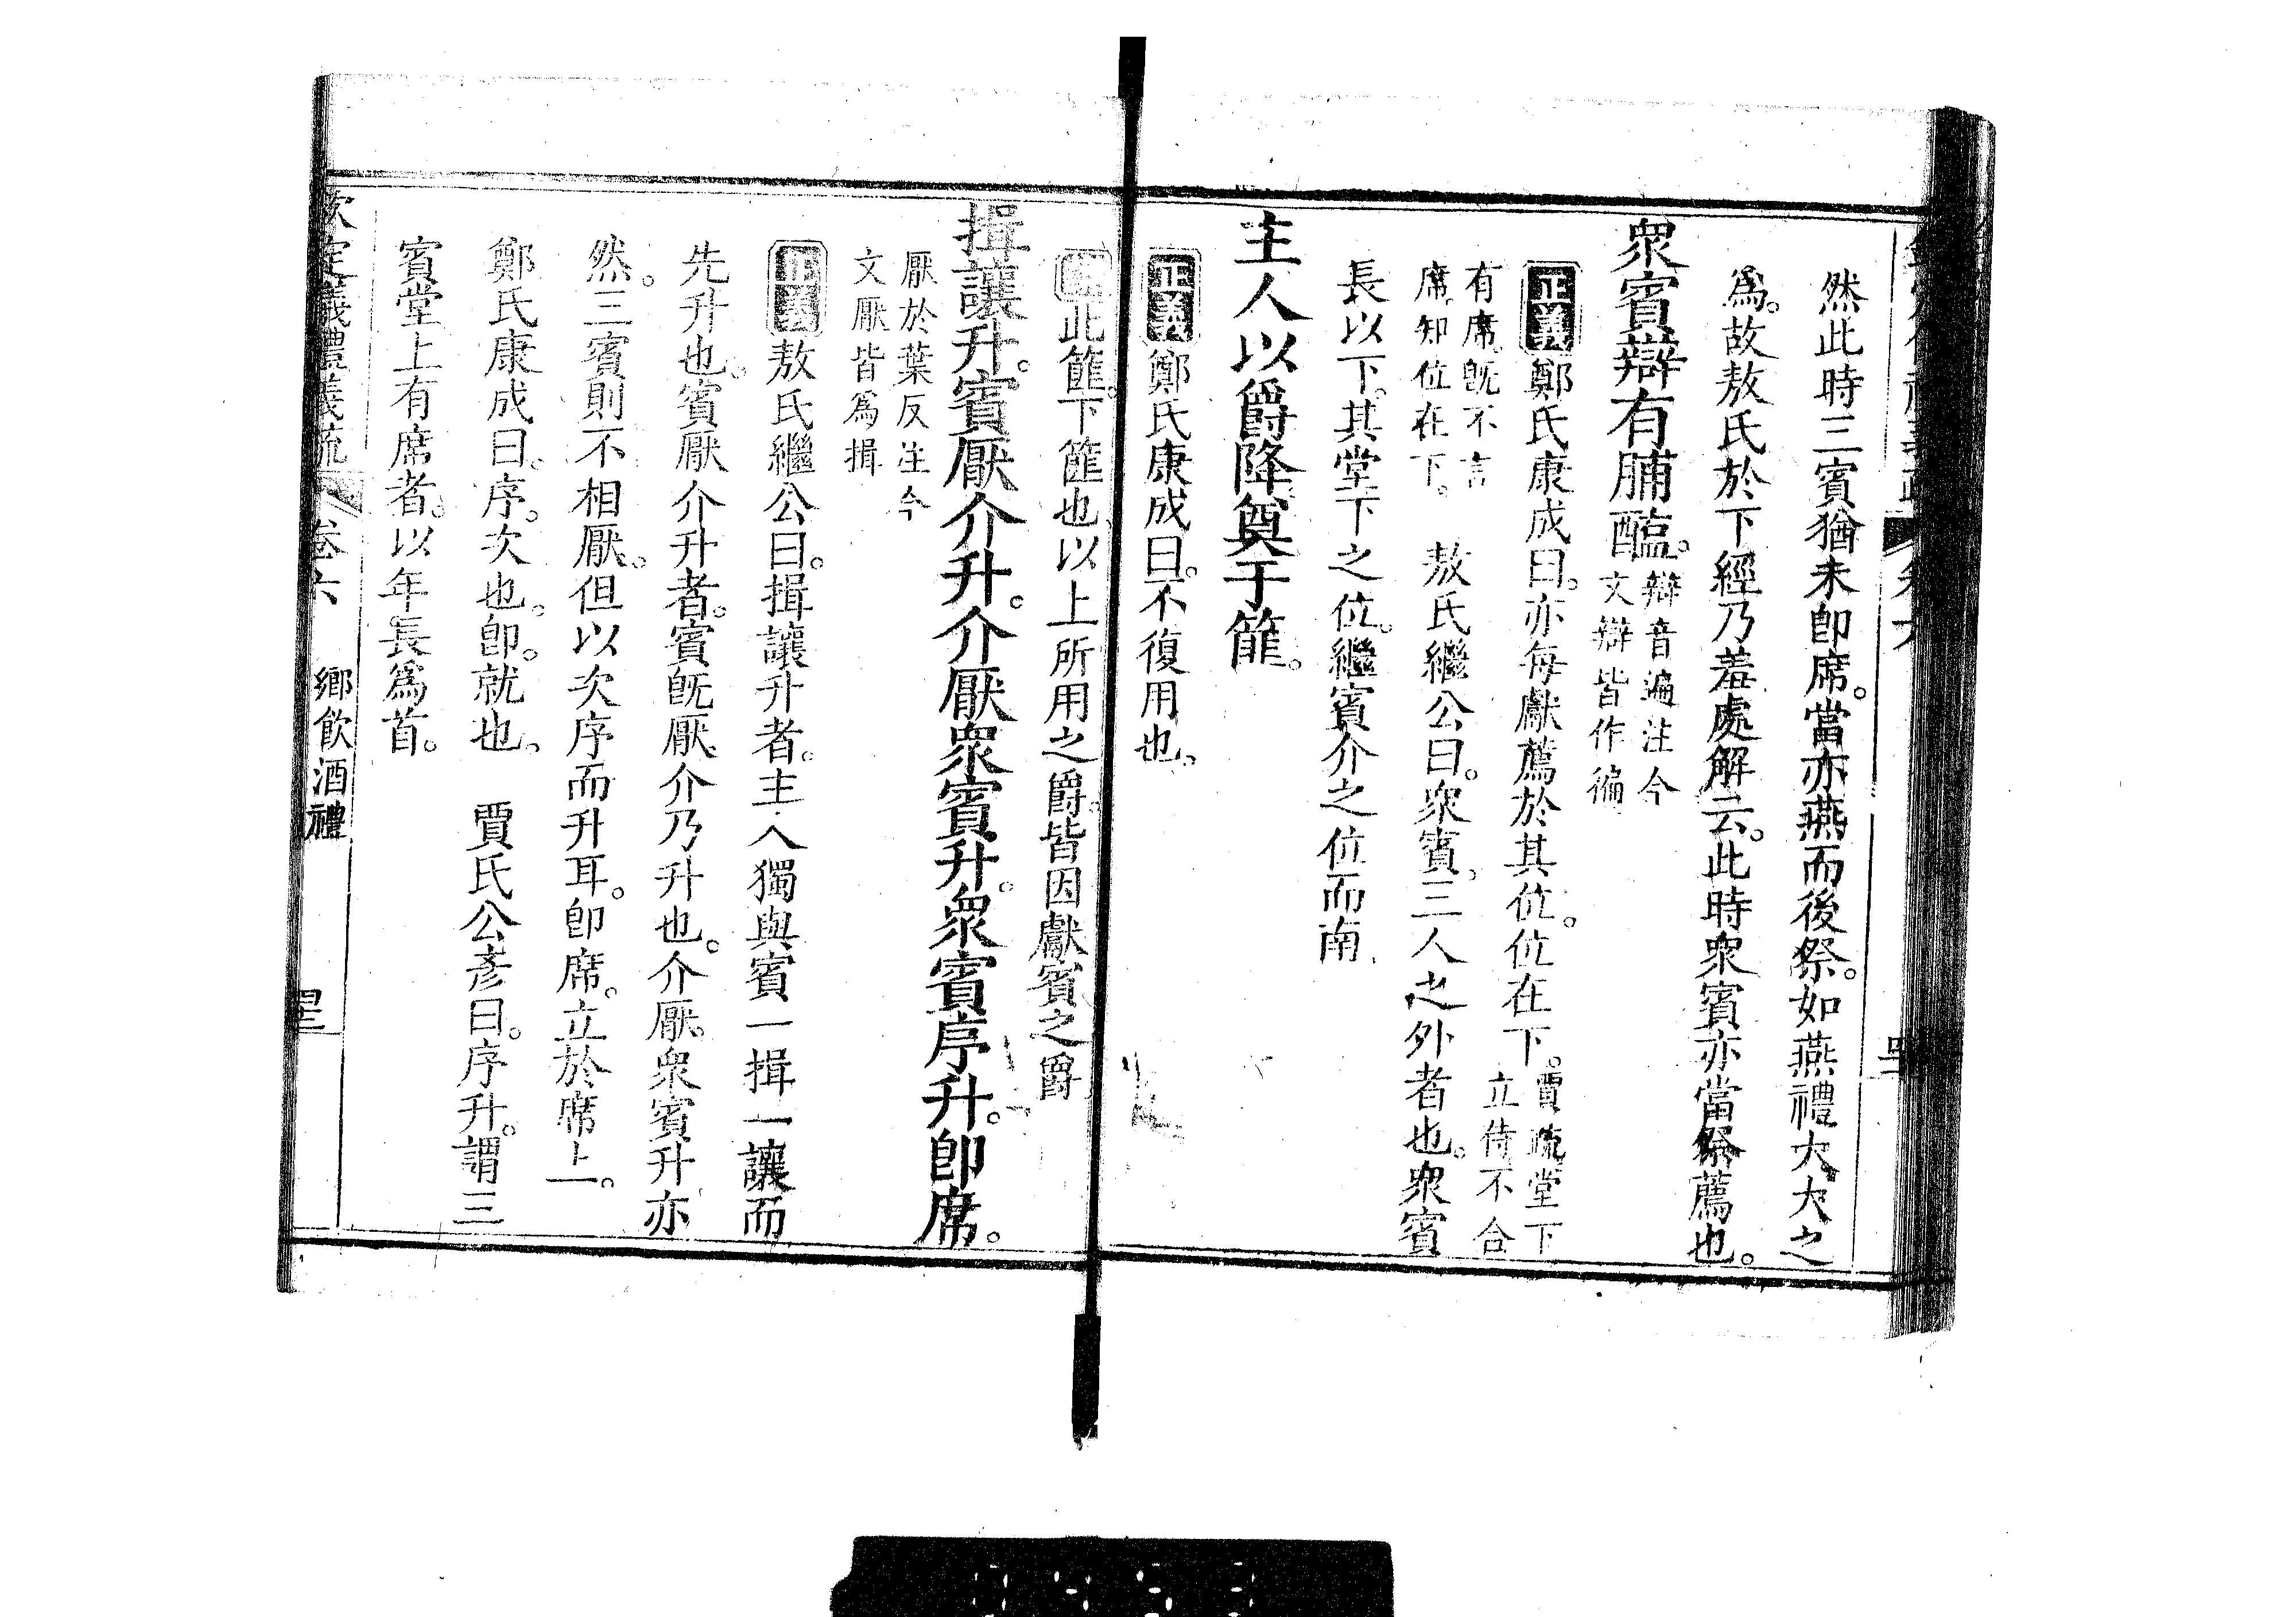 然此時三賓猶未卽席。當亦燕而後祭。如燕禮大夫之
爲。故敖氏於下經乃羞處解云。此時衆賓亦當祭薦也。
衆賓辯有脯醢。辯音遍注今
文辯皆作徧
正義鄭氏康成曰。亦每獻薦於其位。位在下。賈疏堂下
立侍不合
有席。旣不言
席。知位在下。　敖氏繼公曰。衆賓。三人之外者也。衆賓
長以下。其堂下之位。繼賓介之位而南
主人以爵降奠于篚。
正義鄭氏康成曰。不復用也。
此篚。下篚也。以上所用之爵。皆因獻賓之爵
揖讓升。賓厭介升。介厭衆賓升。衆賓序升。卽席。
厭於葉反注今
文厭皆爲揖
正義敖氏繼公曰。揖讓升者。主人獨與賓一揖一讓而
先升也。賓厭介升者。賓旣厭介乃升也。介厭衆賓升亦
然。三賓則不相厭。但以次序而升耳。卽席。立於席上。
鄭氏康成曰。序。次也。卽。就也。　賈氏公彥曰。序升。謂三
賓堂上有席者。以年長爲首。
欽定儀禮義疏　卷六　鄉飲酒禮